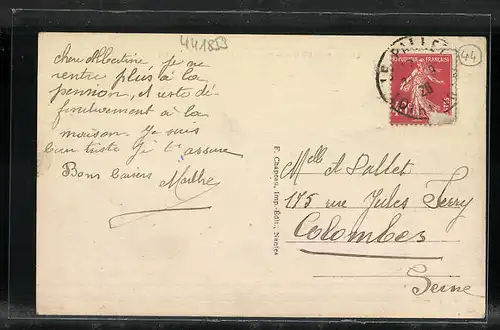 441853
chère Albertine, je ne
rentre plus à la
pension, et reste dé-
finitivement à la
maison. Je suis
bien triste je t'assure
Bons baisers Marthe
F. Chapeau, Imp.-Édit., Nantes
LE PALLET
20
44
RÉPUBLIQUE FRANÇAISE
Melle A Sallet
175 rue Jules Ferry
Colombes
Seine